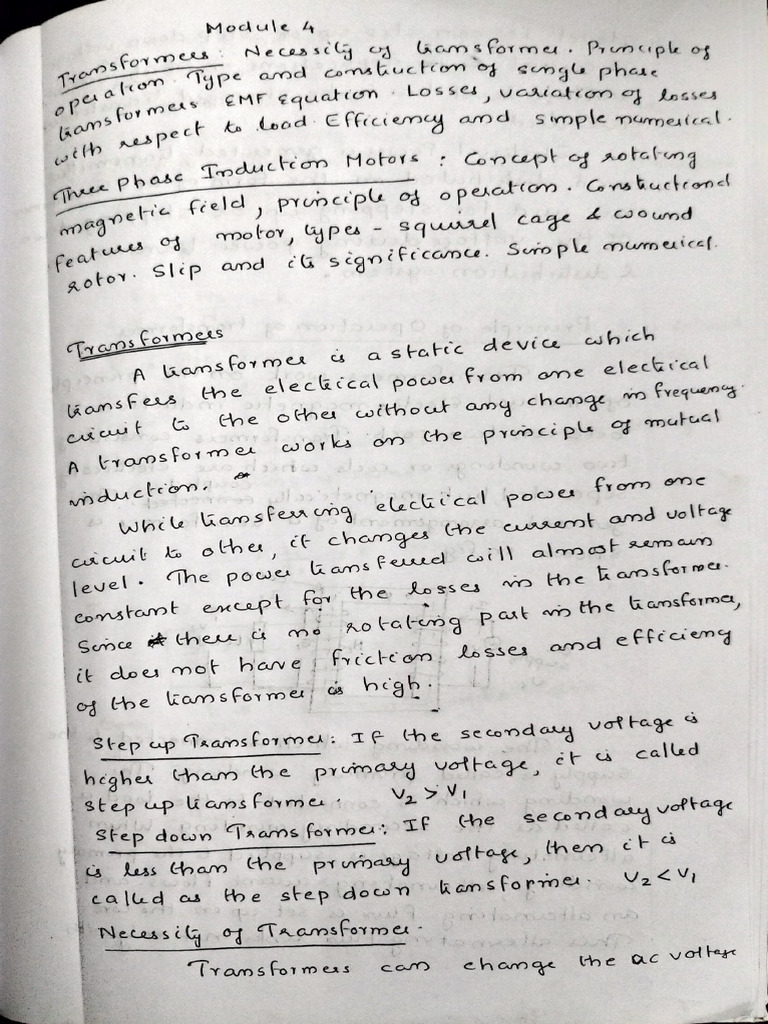 Module 4
Transformers: Necessity of transformer. Principle of
operation Type and construction of single phase
transformers EMF Equation. Losses, variation of losses
with respect to load Efficiency and simple numerical.
Three Phase Induction Motors: Concept of rotating
magnetic field, principle of operation. Constructional
features of motor, types - squirrel cage & wound
rotor. Slip and its significance. Simple numerical.
Transformers
A transformer is a static device which
transfers the electrical power from one electrical
circuit to the other without any change in frequency.
A transformer works on the principle of mutual
induction.
While transferring electrical power from one
circuit to other, it changes the current and voltage
level. The power transferred will almost remain
constant except for the losses in the transformer.
Since there is no rotating part in the transformer,
it does not have friction losses and efficieny
of the transformer is high.
Step up Transformer: If the secondary voltage is
higher than the primary voltage, it is called
step up transformer. V2 > V1
Step down Transformer: If the secondary voltage
is less than the primary voltage, then it is
called as the step down transformer. V2 < V1
Necessity of Transformer.
Transformers can change the ac voltage